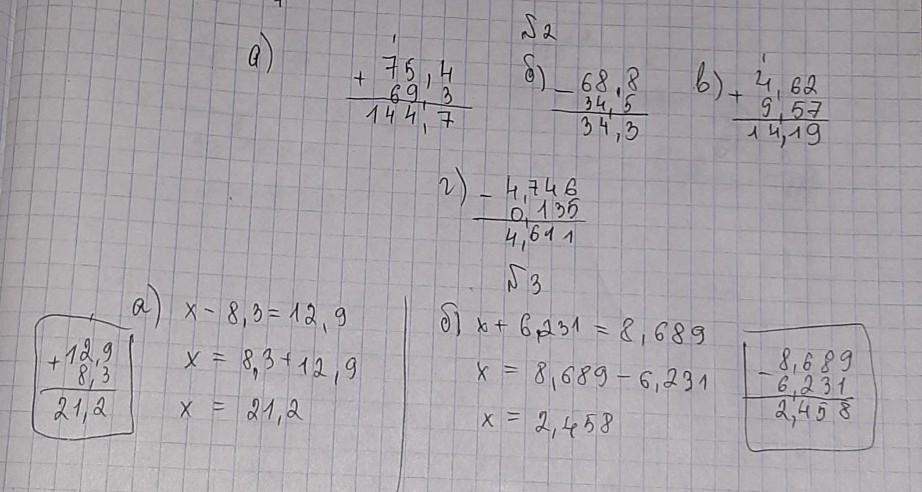 №2
а)
1
+ 75,4
69,3
144,7
б)
- 68,8
34,5
34,3
в)
1
+ 4,62
9,57
14,19
г)
- 4,746
0,135
4,611
№3
а) x - 8,3 = 12,9
x = 8,3 + 12,9
x = 21,2
+ 12,9
8,3
21,2
б) x + 6,231 = 8,689
x = 8,689 - 6,231
x = 2,458
- 8,689
6,231
2,458